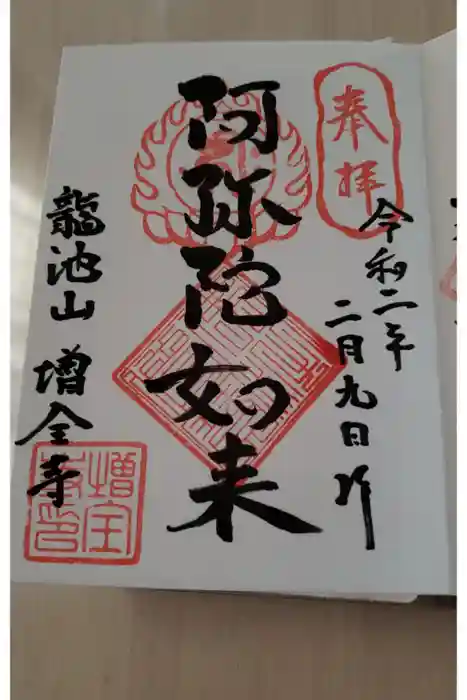 奉拝
令和二年
二月九日
阿弥陀如来
龍池山 増全寺